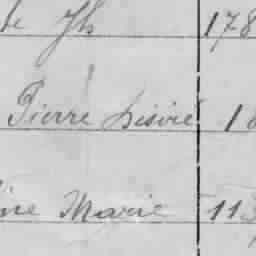 de Jh 178
Pierre Désiré 18
ine Marie 113